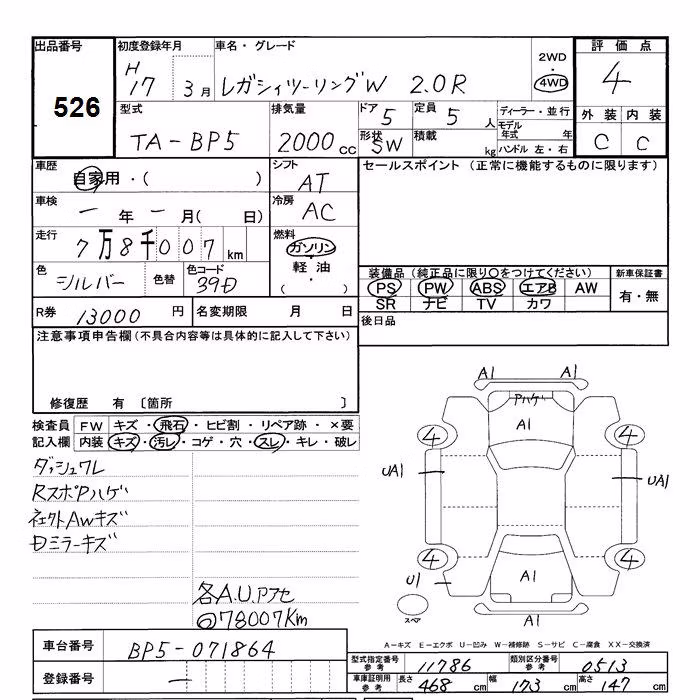 出品番号
526
初度登録年月
H
17 3月
車名・グレード
レガシィツーリングW 2.0R
2WD
・
4WD
評価点
4
外装 内装
C C
型式
TA-BP5
排気量
2000 cc
ドア
5
定員
5 人
形状
SW
積載
kg
ディーラー・並行
モデル
年式 年
ハンドル 左・右
車歴
自家用・( )
シフト
AT
セールスポイント (正常に機能するものに限ります)
車検
ー年ー月( 日)
冷房
AC
走行
7万8千007km
燃料
ガソリン
軽油
( ・ )
色
シルバー
色替
色コード
39D
装備品 (純正品に限り○をつけてください)
新車保証書
PS PW ABS エアB AW
有・無
SR ナビ TV カワ
R券 13000 円
名変期限 月 日
後日品
注意事項申告欄(不具合内容等は具体的に記入して下さい)
修復歴 有 〔箇所 〕
検査員 FW キズ・飛石・ヒビ割・リペア跡・×要
記入欄 内装 キズ・汚レ・コゲ・穴・スレ・キレ・破レ
ダッシュワレ
RスポPハゲ
ネェクトAwキズ
Dミラーキズ
各A.U.Pアセ
@78007Km
A1 A1
Pハゲ
A1
4 4
UA1 UA1
4 4
U1
A1
スペア
A1
A-キズ E-エクボ U-凹み W-補修跡 S-サビ C-腐食 XX-交換済
車台番号
BP5-071864
登録番号
ー
型式指定番号
参考
11786
類別区分番号
参考
0513
車庫証明用
参考
長さ 468 cm 幅 173 cm 高さ 147 cm